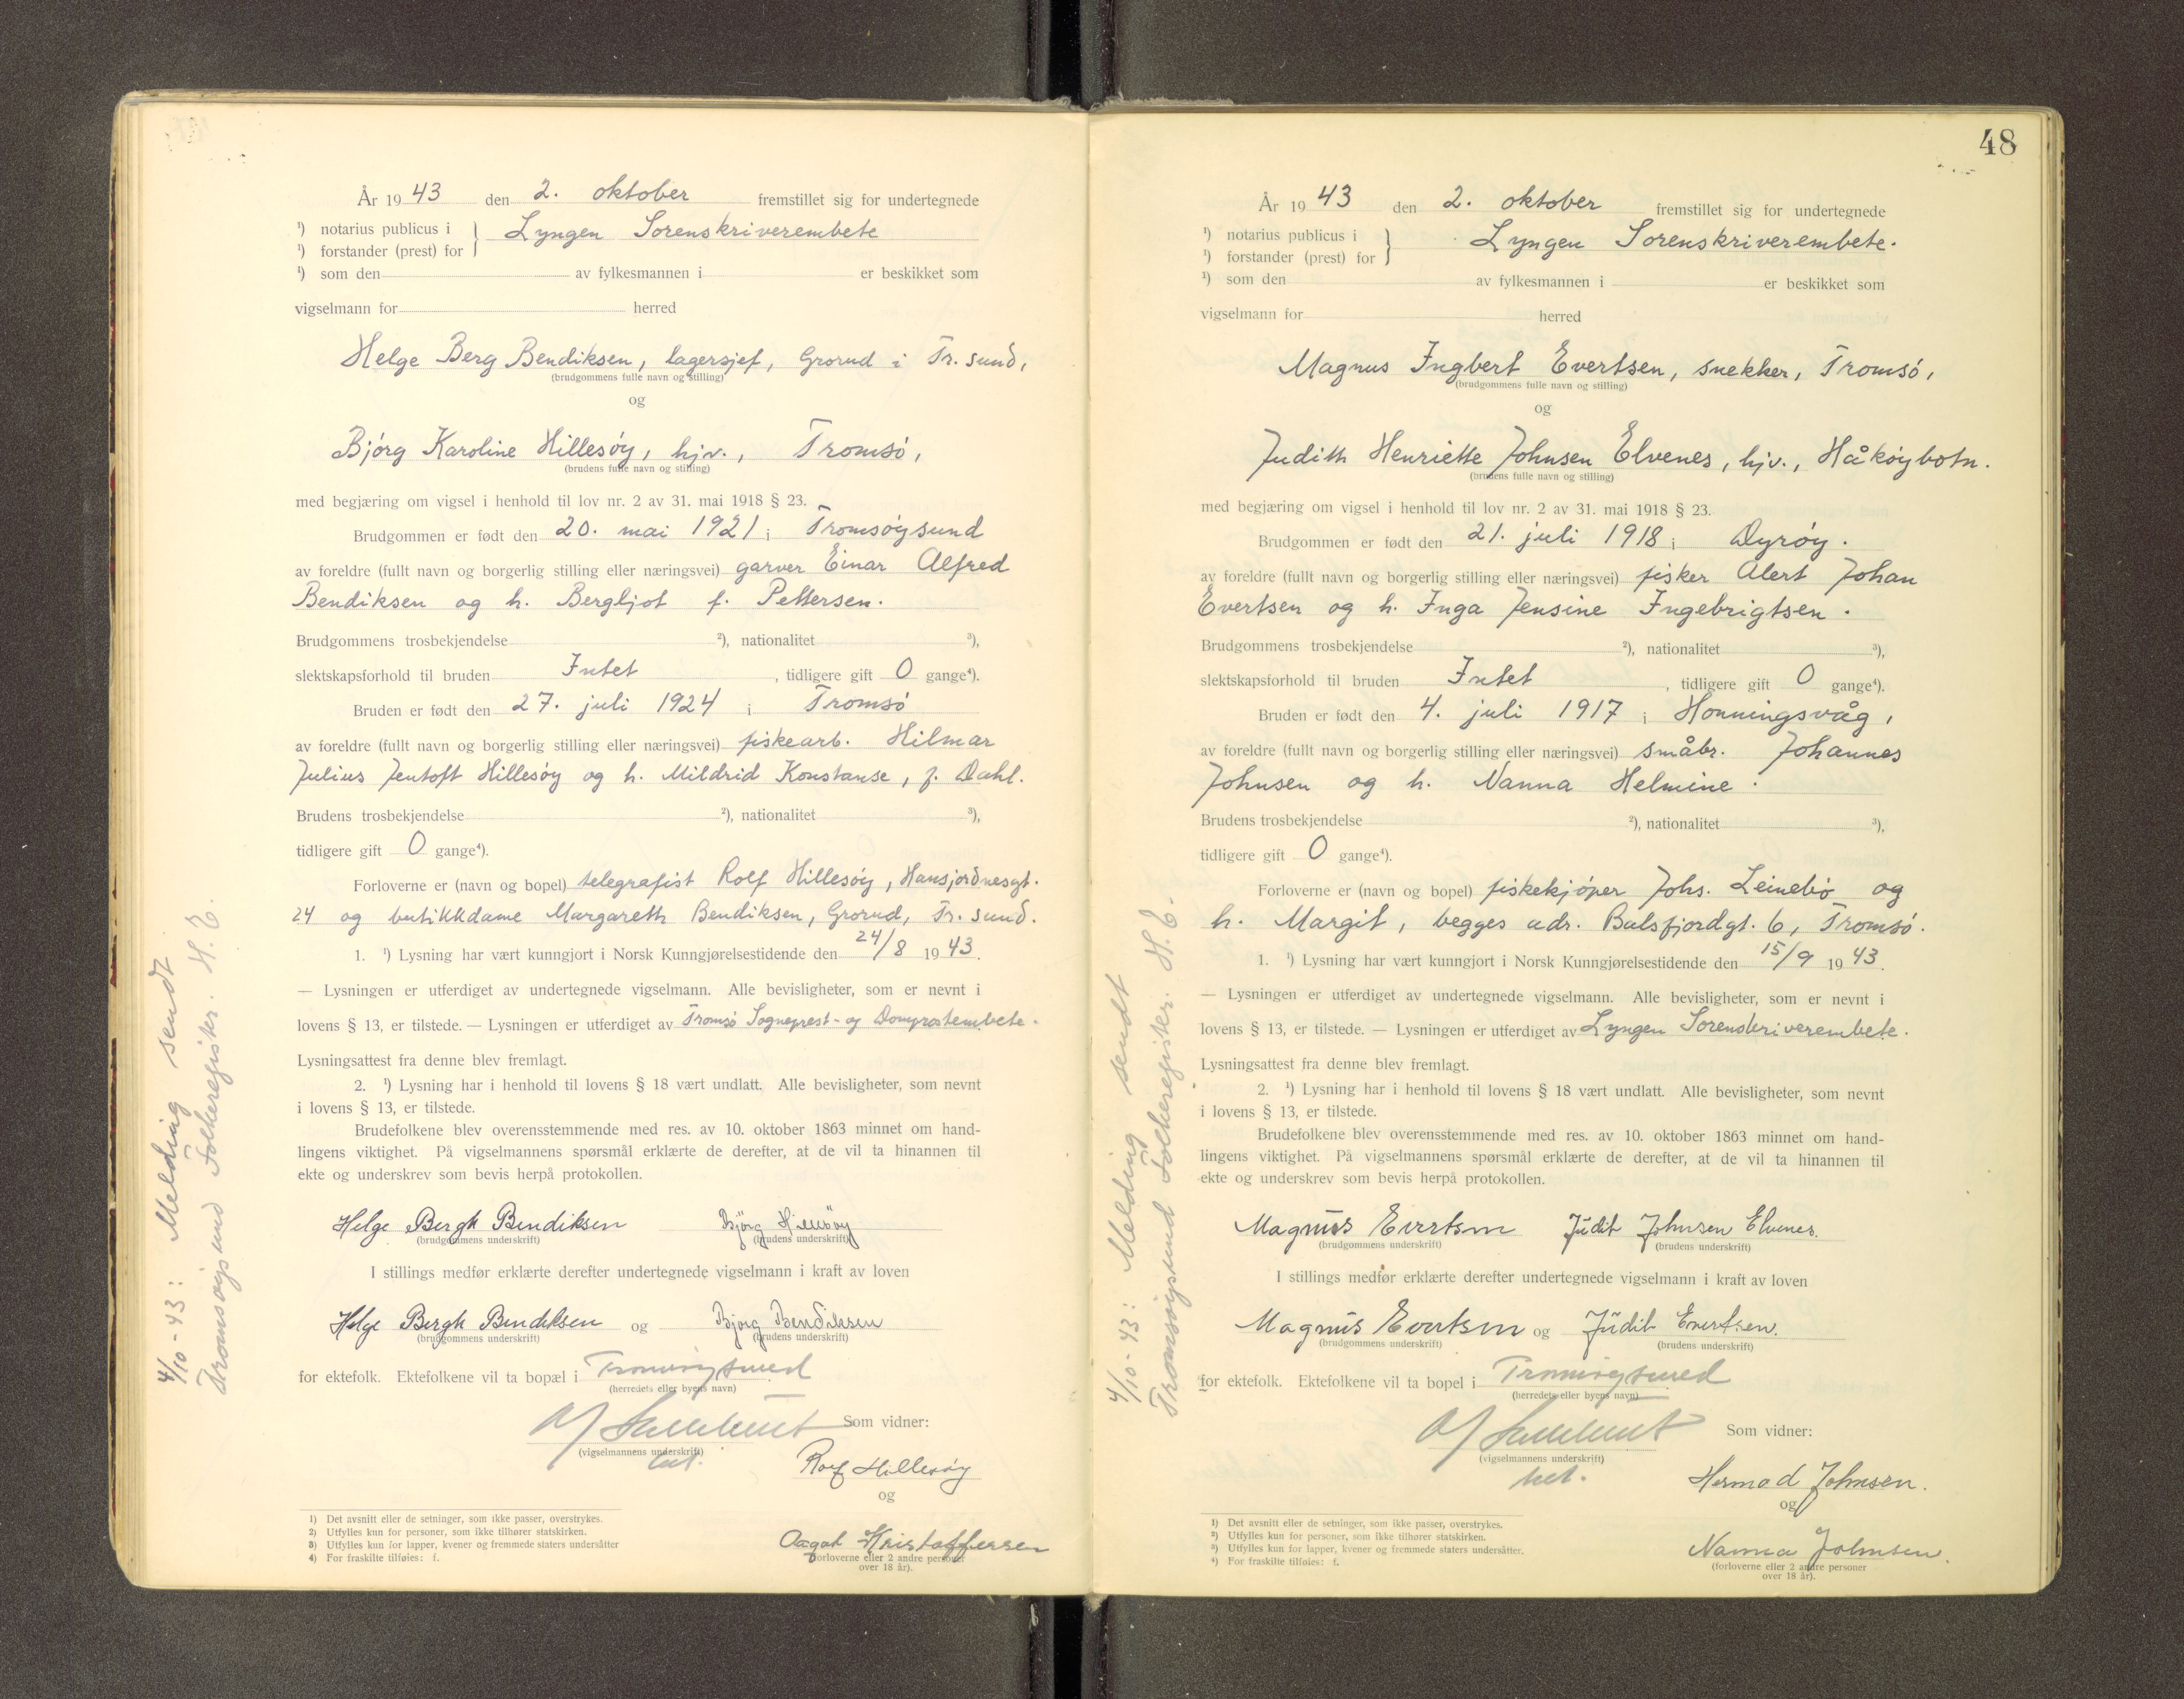 År 1943 den 2. oktober fremstillet sig for undertegnede
¹) notarius publicus i } Lyngen Sorenskriverembete
¹) forstander (prest) for
¹) som den av fylkesmannen i er beskikket som
vigselmann for herred
Helge Berg Bendiksen, lagersjef, Grorud i Tr. sund,
(brudgommens fulle navn og stilling)
og
Bjørg Karoline Hillesøy, hjv., Tromsø,
(brudens fulle navn og stilling)
med begjæring om vigsel i henhold til lov nr. 2 av 31. mai 1918 § 23.
Brudgommen er født den 20. mai 1921 i Tromsøysund
av foreldre (fullt navn og borgerlig stilling eller næringsvei) garver Einar Alfred
Bendiksen og h. Bergljot f. Pettersen.
Brudgommens trosbekjendelse ²), nationalitet ³),
slektskapsforhold til bruden Intet, tidligere gift 0 gange⁴).
Bruden er født den 27. juli 1924 i Tromsø
av foreldre (fullt navn og borgerlig stilling eller næringsvei) fiskearb. Hilmar
Julius Jentoft Hillesøy og h. Mildrid Konstanse, f. Dahl.
Brudens trosbekjendelse ²), nationalitet ³),
tidligere gift 0 gange⁴).
Forloverne er (navn og bopel) telegrafist Rolf Hillesøy, Hansjordnesgt.
24 og butikkdame Margareth Bendiksen, Grorud, Tr. sund.
1. ¹) Lysning har vært kunngjort i Norsk Kunngjørelsestidende den 24/8 1943.
— Lysningen er utferdiget av undertegnede vigselmann. Alle bevisligheter, som er nevnt i
lovens § 13, er tilstede. — Lysningen er utferdiget av Tromsø Sogneprest- og Domprostembete.
Lysningsattest fra denne blev fremlagt.
2. ¹) Lysning har i henhold til lovens § 18 vært undlatt. Alle bevisligheter, som nevnt
i lovens § 13, er tilstede.
Brudefolkene blev overensstemmende med res. av 10. oktober 1863 minnet om hand-
lingens viktighet. På vigselmannens spørsmål erklærte de derefter, at de vil ta hinannen til
ekte og underskrev som bevis herpå protokollen.
Helge Bergh Bendiksen Bjørg Hillesøy
(brudgommens underskrift) (brudens underskrift)
I stillings medfør erklærte derefter undertegnede vigselmann i kraft av loven
Helge Bergh Bendiksen og Bjørg Bendiksen
(brudgommens underskrift) (brudens underskrift)
for ektefolk. Ektefolkene vil ta bopæl i Tromsøysund
(herredets eller byens navn)
Som vidner:
(vigselmannens underskrift)
Rolf Hillesøy
og
Aagot Kristoffersen
(forloverne eller 2 andre personer
over 18 år).
1) Det avsnitt eller de setninger, som ikke passer, overstrykes.
2) Utfylles kun for personer, som ikke tilhører statskirken.
3) Utfylles kun for lapper, kvener og fremmede staters undersåtter
4) For fraskilte tilføies: f.
4/10-43: Melding sendt
Tromsøysund Folkeregister. H. E.
48
År 1943 den 2. oktober fremstillet sig for undertegnede
¹) notarius publicus i } Lyngen Sorenskriverembete.
¹) forstander (prest) for
¹) som den av fylkesmannen i er beskikket som
vigselmann for herred
Magnus Ingbert Evertsen, snekker, Tromsø,
(brudgommens fulle navn og stilling)
og
Judith Henriette Johnsen Elvenes, hjv., Håkøybotn.
(brudens fulle navn og stilling)
med begjæring om vigsel i henhold til lov nr. 2 av 31. mai 1918 § 23.
Brudgommen er født den 21. juli 1918 i Dyrøy.
av foreldre (fullt navn og borgerlig stilling eller næringsvei) fisker Alert Johan
Evertsen og h. Inga Jensine Ingebrigtsen.
Brudgommens trosbekjendelse ²), nationalitet ³),
slektskapsforhold til bruden Intet, tidligere gift 0 gange⁴).
Bruden er født den 4. juli 1917 i Honningsvåg,
av foreldre (fullt navn og borgerlig stilling eller næringsvei) småbr. Johannes
Johnsen og h. Nanna Helmine.
Brudens trosbekjendelse ²), nationalitet ³),
tidligere gift 0 gange⁴).
Forloverne er (navn og bopel) fiskekjøper Johs. Leinebø og
h. Margit, begges adr. Balsfjordgt. 6, Tromsø.
1. ¹) Lysning har vært kunngjort i Norsk Kunngjørelsestidende den 15/9 1943.
— Lysningen er utferdiget av undertegnede vigselmann. Alle bevisligheter, som er nevnt i
lovens § 13, er tilstede. — Lysningen er utferdiget av Lyngen Sorenskriverembete.
Lysningsattest fra denne blev fremlagt.
2. ¹) Lysning har i henhold til lovens § 18 vært undlatt. Alle bevisligheter, som nevnt
i lovens § 13, er tilstede.
Brudefolkene blev overensstemmende med res. av 10. oktober 1863 minnet om hand-
lingens viktighet. På vigselmannens spørsmål erklærte de derefter, at de vil ta hinannen til
ekte og underskrev som bevis herpå protokollen.
Magnus Evertsen Judit Johnsen Elvenes.
(brudgommens underskrift) (brudens underskrift)
I stillings medfør erklærte derefter undertegnede vigselmann i kraft av loven
Magnus Evertsen og Judit Evertsen.
(brudgommens underskrift) (brudens underskrift)
for ektefolk. Ektefolkene vil ta bopel i Tromsøysund
(herredets eller byens navn)
Som vidner:
(vigselmannens underskrift)
Hermod Johnsen.
og
Nanna Johnsen.
(forloverne eller 2 andre personer
over 18 år).
1) Det avsnitt eller de setninger, som ikke passer, overstrykes.
2) Utfylles kun for personer, som ikke tilhører statskirken.
3) Utfylles kun for lapper, kvener og fremmede staters undersåtter.
4) For fraskilte tilføies: f.
4/10-43: Melding sendt
Tromsøysund Folkeregister. H. E.